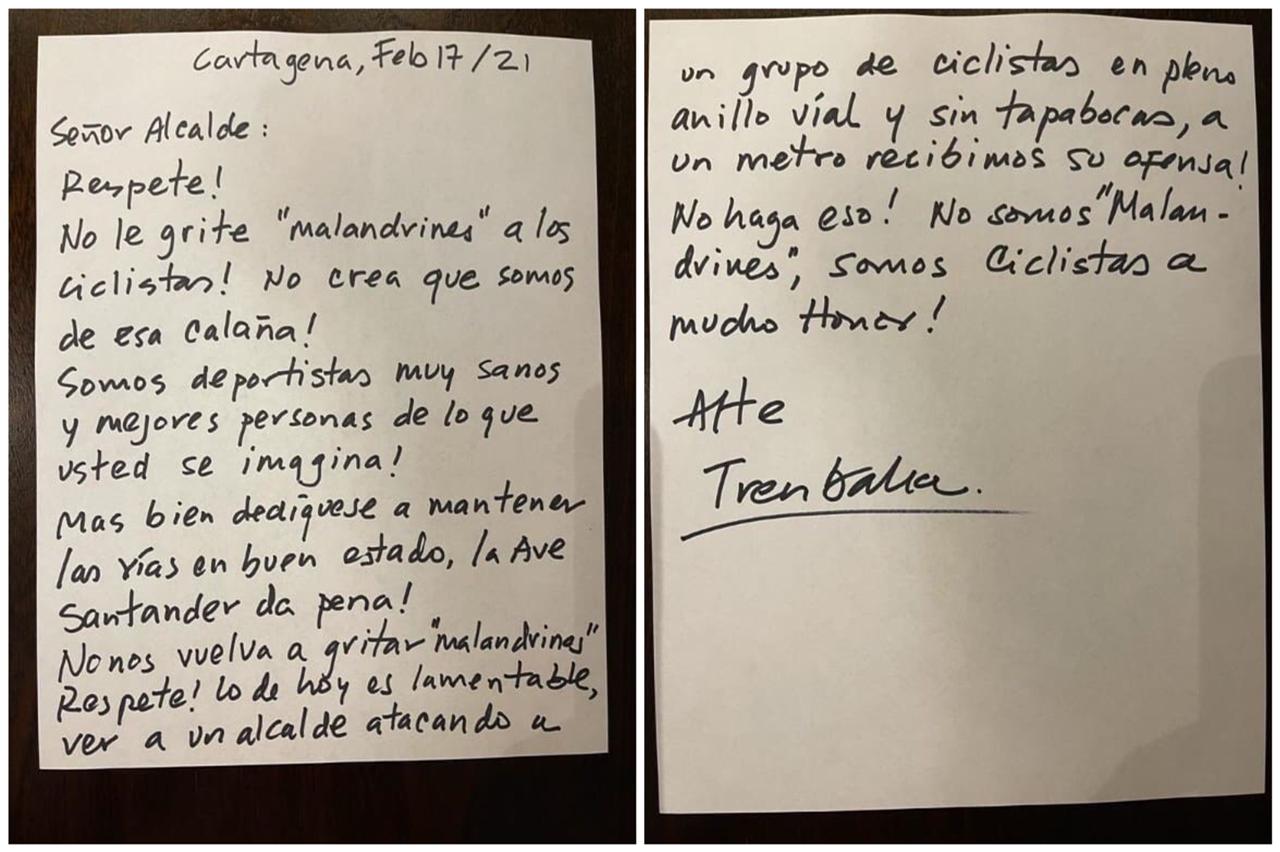 Cartagena, Feb 17/21
Señor Alcalde:
Respete!
No le grite "malandrines" a los
ciclistas! No crea que somos
de esa calaña!
Somos deportistas muy sanos
y mejores personas de lo que
usted se imagina!
Mas bien dediquese a mantener
las vías en buen estado, la Ave
Santander da pena!
No nos vuelva a gritar "malandrines"
Respete! lo de hoy es lamentable,
ver a un alcalde atacando a
un grupo de ciclistas en pleno
anillo víal y sin tapabocas, a
un metro recibimos su ofensa!
No haga eso! No somos "Malan-
drines", somos Ciclistas a
mucho Honor!
Atte
Tren